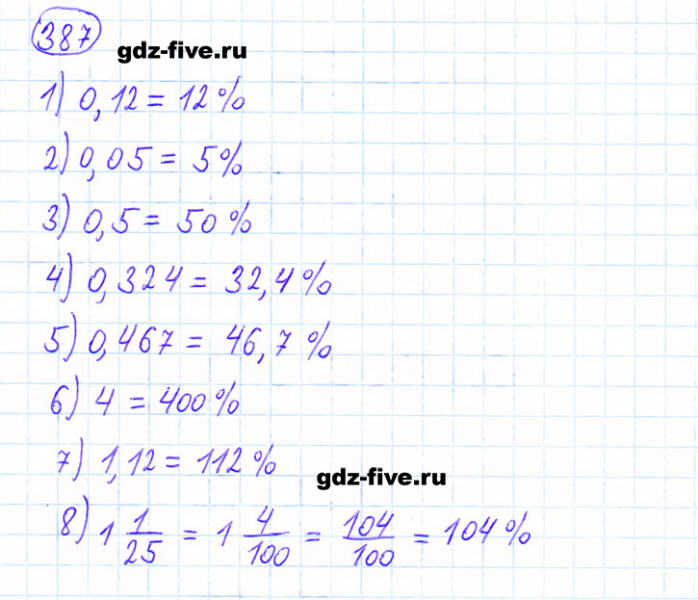 387
gdz-five.ru
1) 0,12 = 12%
2) 0,05 = 5%
3) 0,5 = 50%
4) 0,324 = 32,4%
5) 0,467 = 46,7%
6) 4 = 400%
7) 1,12 = 112%
gdz-five.ru
8) 1 1/25 = 1 4/100 = 104/100 = 104%